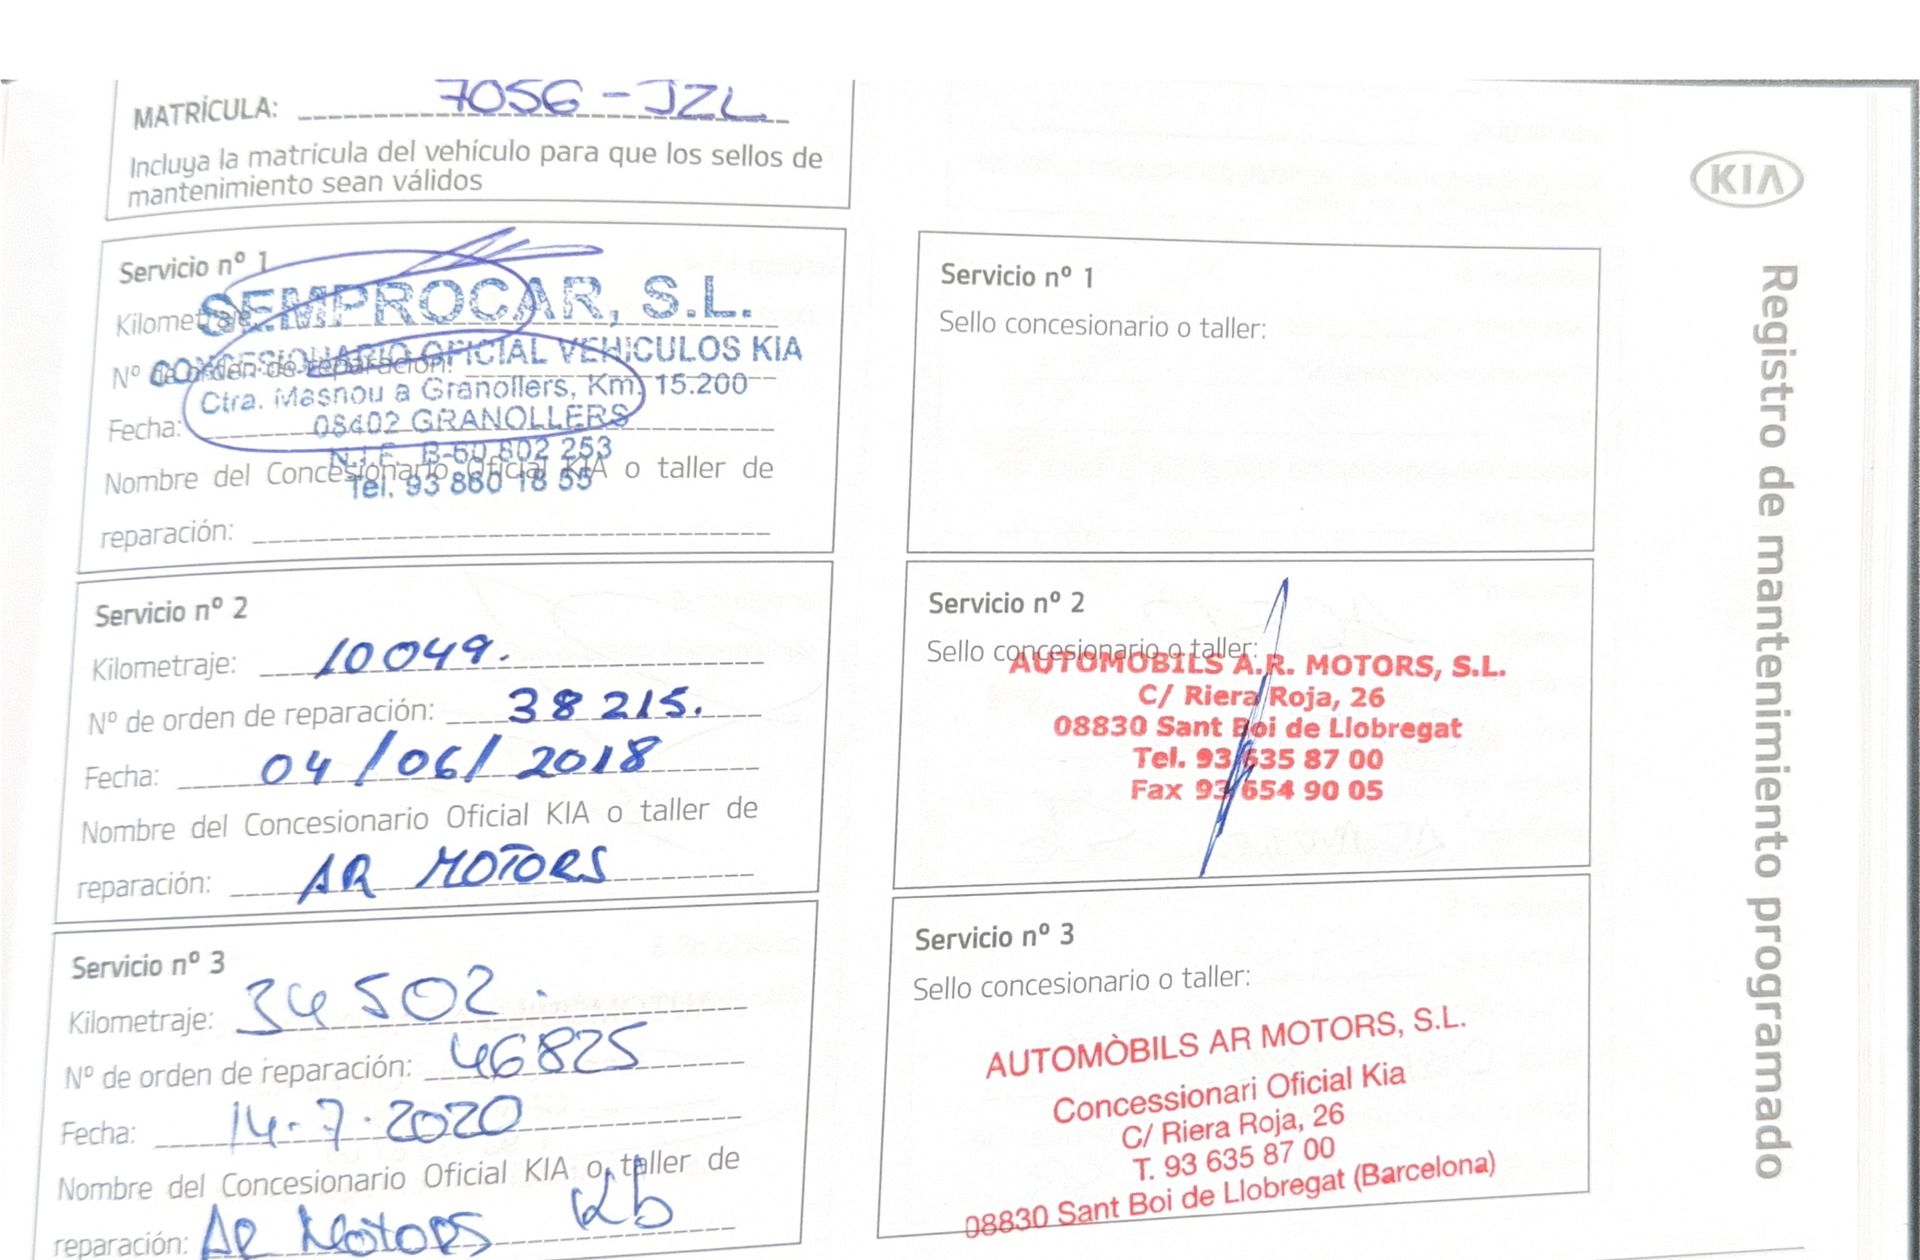 MATRÍCULA: 7056 - JZL
Incluya la matrícula del vehículo para que los sellos de
mantenimiento sean válidos
KIA
Registro de mantenimiento programado
Servicio nº 1
Kilometraje
SEMPROCAR, S.L.
CONCESIONARIO OFICIAL VEHICULOS KIA
Nº de orden de reparación:
Ctra. Masnou a Granollers, Km. 15.200
Fecha:
08402 GRANOLLERS
N.I.F. B-60 802 253
Nombre del Concesionario Oficial KIA o taller de
Tel. 93 860 18 55
reparación:
Servicio nº 1
Sello concesionario o taller:
Servicio nº 2
Kilometraje: 10049.
Nº de orden de reparación: 38215.
Fecha: 04/06/2018
Nombre del Concesionario Oficial KIA o taller de
reparación: AR MOTORS
Servicio nº 2
Sello concesionario o taller:
AUTOMOBILS A.R. MOTORS, S.L.
C/ Riera Roja, 26
08830 Sant Boi de Llobregat
Tel. 93 635 87 00
Fax 93 654 90 05
Servicio nº 3
Kilometraje: 34502.
Nº de orden de reparación: 46825
Fecha: 14-7-2020
Nombre del Concesionario Oficial KIA o taller de
reparación: AR Motors
Servicio nº 3
Sello concesionario o taller:
AUTOMÒBILS AR MOTORS, S.L.
Concessionari Oficial Kia
C/ Riera Roja, 26
T. 93 635 87 00
08830 Sant Boi de Llobregat (Barcelona)